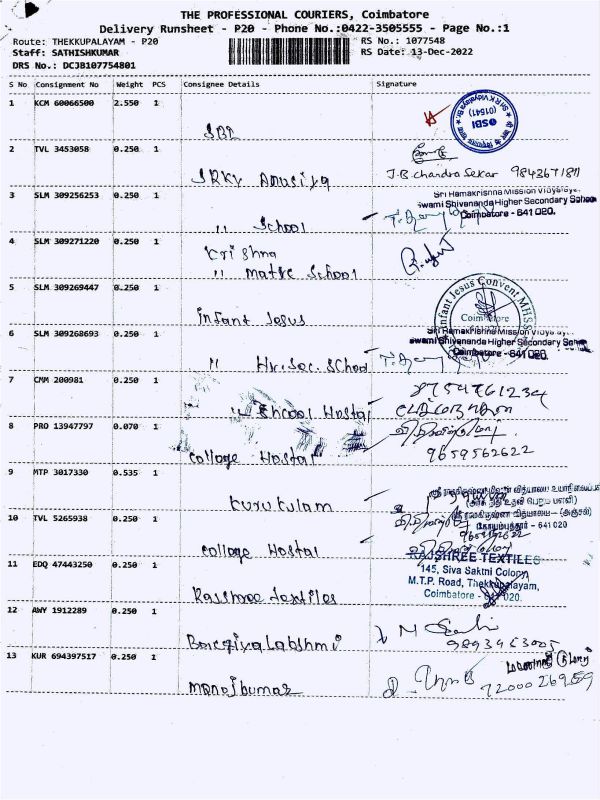 THE PROFESSIONAL COURIERS, Coimbatore
Delivery Runsheet - P20 - Phone No.:0422-3505555 - Page No.:1
Route: THEKKUPALAYAM - P20
RS No.: 1077548
Staff: SATHISHKUMAR
RS Date: 13-Dec-2022
DRS No.: DC3B107754801
S No Consignment No Weight PCS Consignee Details Signature
1 KCM 60066500 2.550 1
SBI
SBI (01541)
2 TVL 3453058 0.250 1
SRKV Anusiya
J.B. chandra Sekar 9843671811
3 SLM 309256253 0.250 1
" School
Sri Ramakrishna Mission Vidyalaya
Swami Shivananda Higher Secondary School
Coimbatore - 641 020.
4 SLM 309271220 0.250 1
Krishna
" matric School
5 SLM 309269447 0.250 1
infant Jesus
Infant Jesus Convent MHSS
Coimbatore
6 SLM 309268693 0.250 1
" Hr.Sec.School
Sri Ramakrishna Mission Vidyalaya
Swami Shivananda Higher Secondary School
Coimbatore - 641 020.
7 CMM 200981 0.250 1
" School Hostal
8754761234
8 PRO 13947797 0.070 1
College Hostal
9659562622
9 MTP 3017330 0.535 1
Kurukulam
கோயம்புத்தூர் - 641020
10 TVL 5265938 0.250 1
College Hostal
11 EDQ 47443250 0.250 1
Rajshree textiles
RAJSHREE TEXTILES
145, Siva Sakthi Colony
M.T.P. Road, Thekkupalayam,
Coimbatore - 020.
12 AWY 1912289 0.250 1
13 KUR 694397517 0.250 1
manojkumar